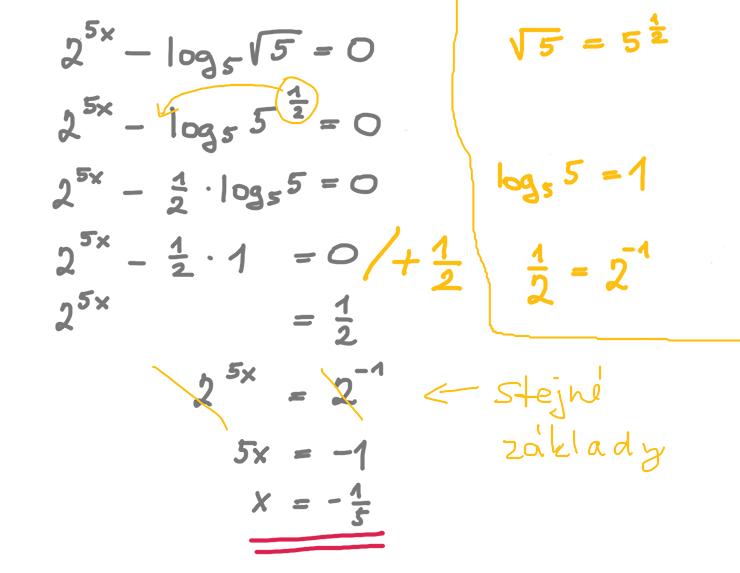 2^{5x} - log₅√5 = 0
2^{5x} - log₅ 5^{1/2} = 0
2^{5x} - 1/2 · log₅ 5 = 0
2^{5x} - 1/2 · 1 = 0 / + 1/2
2^{5x} = 1/2
2^{5x} = 2^{-1} ← stejné
základy
5x = -1
x = -1/5
√5 = 5^{1/2}
log₅ 5 = 1
1/2 = 2^{-1}